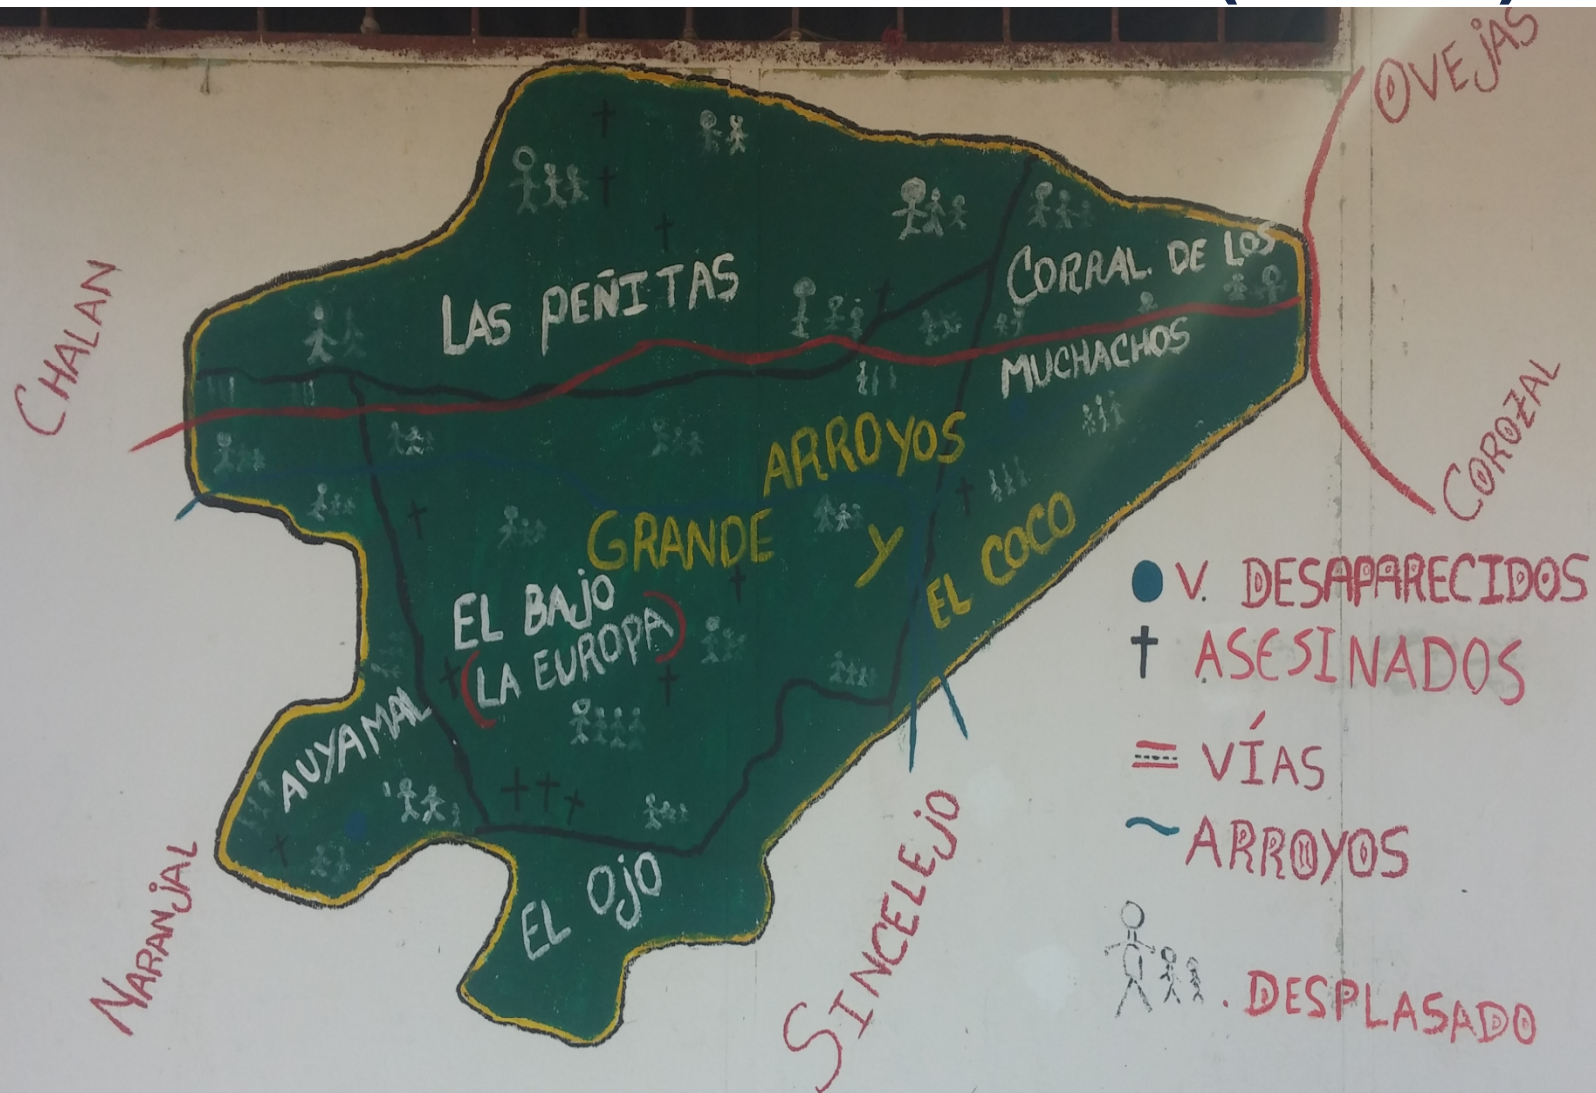 OVEJAS
CORRAL DE LOS
MUCHACHOS
LAS PEÑITAS
CHALAN
COROZAL
ARROYOS
GRANDE Y
EL COCO
EL BAJO
(LA EUROPA)
AUYAMAL
EL OJO
NARANJAL
SINCELEJO
V. DESAPARECIDOS
ASESINADOS
VÍAS
ARROYOS
. DESPLASADO